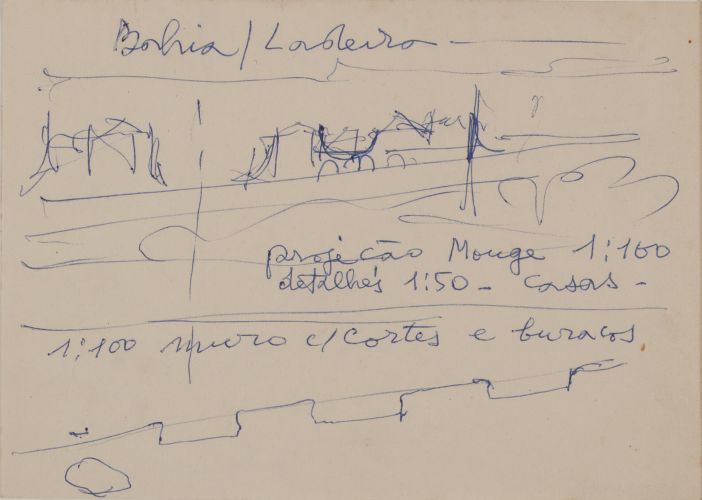 Bahia/Ladeira
projeção Monge 1:100
detalhes 1:50 - casas -
1:100 muro c/cortes e buracos